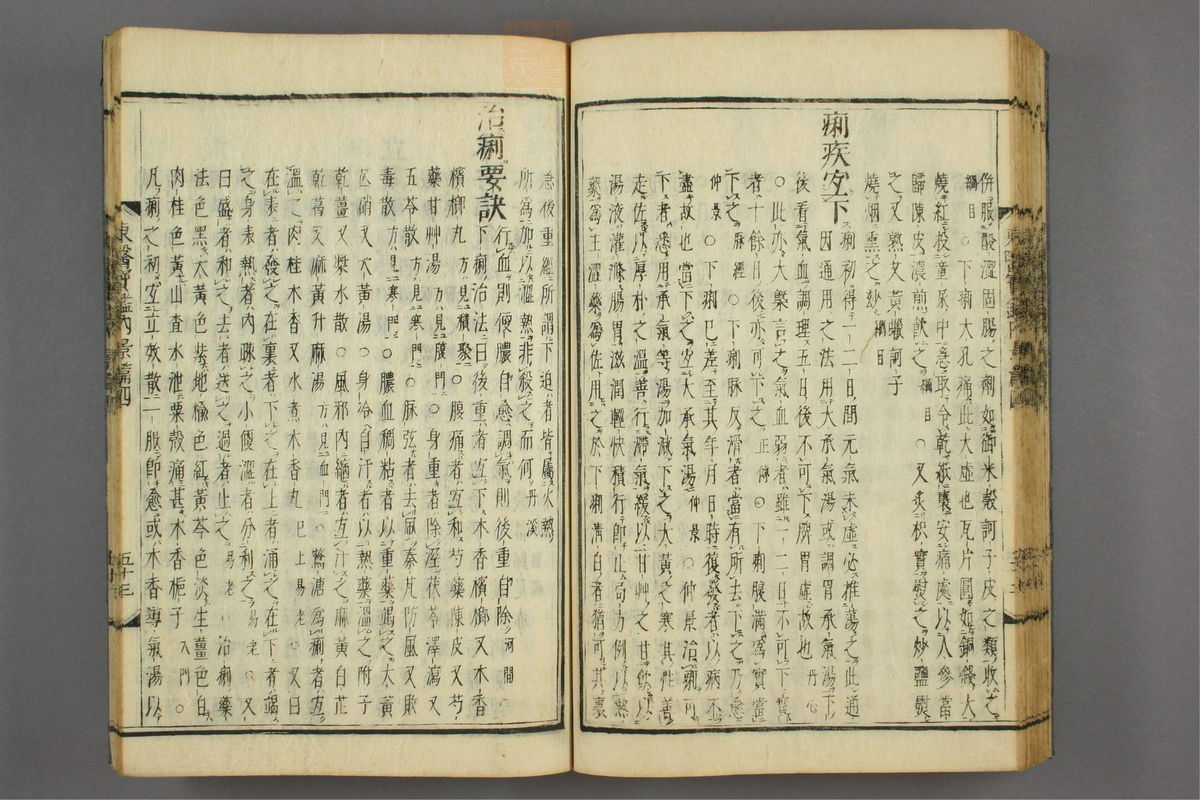 併服酸澀固腸之劑如御米殼訶子皮之類收之
綱目○下痢大孔痛此大虛也瓦片圓如銅錢大
燒紅投童尿中急取令乾紙裹安痛處以人參當
歸陳皮濃煎飮之綱目○又炙枳實熨之妙鹽熨
之又熟艾黃蠟訶子
燒烟熏之妙綱目
痢疾宜下
痢初得一二日間元氣未虛必推蕩之此通
因通用之法用大承氣湯或調胃承氣湯下
後看氣血調理五日後不可下脾胃虛故也丹心
○此亦大槩言之氣血弱者雖一二日不可下實
者十餘日後亦可下之正傳○下痢腹滿爲實當
下之脉經○下痢脉反滑者當有所去下之乃愈
仲景○下痢已差至其年月日時復發者以病不
盡故也當下之宜大承氣湯仲景○仲景治痢可
下者悉用承氣等湯加減下之大黃之寒其性善
走佐以厚朴之溫善行滯氣緩以甘艸之甘飮以
湯液灌滌腸胃滋潤輕快積行卽止局方例以熱
藥爲主澀藥爲佐用之於下痢淸白者猶可其裏
急後重經所謂下迫者皆屬火熱
所爲加以澀熱非殺之而何丹溪
治痢要訣
行血則便膿自愈調氣則後重自除河間○
下痢治法曰後重者宜下木香檳榔又木香
檳榔丸方見積聚○腹痛者宜和芍藥陳皮又芍
藥甘艸湯方見腹門○身重者除溼茯苓澤瀉又
五苓散方見寒門○脉弦者去風秦艽防風又敗
毒散方見寒門○膿血稠粘者以重藥竭之大黃
芒硝又大黃湯○身冷自汗者以熱藥溫之附子
乾薑又漿水散○風邪內縮者宜汗之麻黃白芷
乾葛又麻黃升麻湯方見血門○鶩溏爲痢者宜
溫之肉桂木香又水煮木香丸已上易老○又曰
在表者發之在裏者下之在上者涌之在下者竭
之身表熱者內疎之小便澀者分利之易老○又
曰盛者和之去者送之過者止之易老○治痢藥
法色黑大黃色紫地楡色紅黃芩色淡生薑色白
肉桂色黃山査水泄粟殼痛甚木香梔子入門○
凡痢之初宜立效散一服卽愈或木香導氣湯以
東醫寶鑑內景篇四
五十三